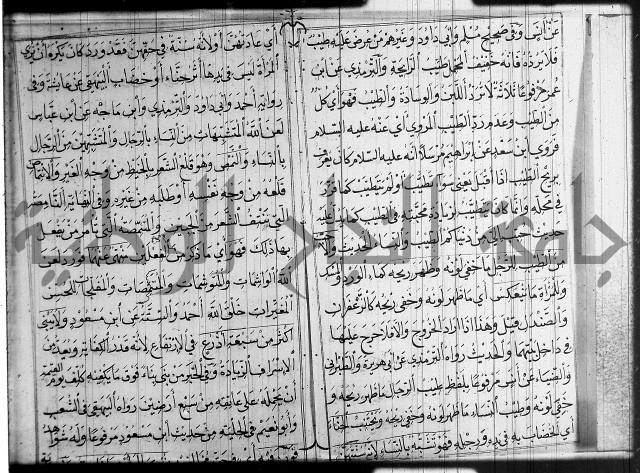 عن أنس وفي صحيح مسلم وأبي داود وغيرهم من عرض عليه طيب
فلا يرده فانه خفيف المحمل طيب الرايحة والترمذي عن ابن
عمر مرفوعا ثلاثة لا ترد اللبن والوسادة والطيب فهو أي كل
من الطيب وعدم رد الطيب المروي أي عنه عليه السلام
فروي ابن سعد عن ابراهيم مرسلا انه عليه السلام كان يعرف
بريح الطيب اذا أقبل يعني سوا تطيب أو لم يتطيب كما قرر
في محله وانما كان يتطيب لزيادة محبته في الطيب كما يدل عليه
حديث من دنياكم الطيب والنساء الحديث
من الطيب للرجل ما خفي لونه وظهر ريحه كماء الورد والمسك
وللمرأة ما ينعكس أي ما ظهر لونه وخفي ريحه كالزعفران
والصندل قيل وهذا اذا اراد الخروج والا فلا حرج عليها
في داخل بيتها والحديث رواه الترمذي عن أبي هريرة والطبراني
والضياء عن أنس مرفوعا بلفظ طيب الرجل ما ظهر ريحه و
خفي لونه وطيب النساء ما ظهر لونه وخفي ريحه ويجتنب الحناء
أي الخضاب به في يده ورجله فهو تشبه بالنساء لانه سنتهن
أي عادتهن أو لأنه سنة في حقهن فقد ورد كان يكره أن يرى
المرأة ليس في يدها أثر حناء أو خضاب البيهقي عن عائشة وفي
رواية احمد وأبي داود والترمذي وابن ماجه عن ابن عباس
لعن الله المتشبهات من النساء بالرجال والمتشبهين من الرجال
بالنساء والنمص وهو قلع الشعر بالخيط من وجه الغير
قلعه من وجه نفسه أو طلبه من غيره وفي النهاية النامصة
التي تنتف الشعر من الجبين والمتنمصة التي تأمر من يفعل
بها ذلك فهو أي ما ذكر من الفعلين منهي عنهما فورد لعن
الله الواشمات والمستوشمات والمتنمصات والمتفلجات للحسن
المغيرات خلق الله احمد والستة عن ابن مسعود ولا يبنى
أكثر من سبعة أذرع في الارتفاع لانه قدر الكفاية وبعده من
الاسراف الزيادة وفي الخبر من بنى بناء فوق ما يكفيه كلف يوم القيمة
أن يحمله على عاتقه من سبع أرضين رواه البيهقي في الشعب
وأبو نعيم في الحلية من حديث ابن مسعود مرفوعا وله شواهد
جامعة النجاح الوطنية